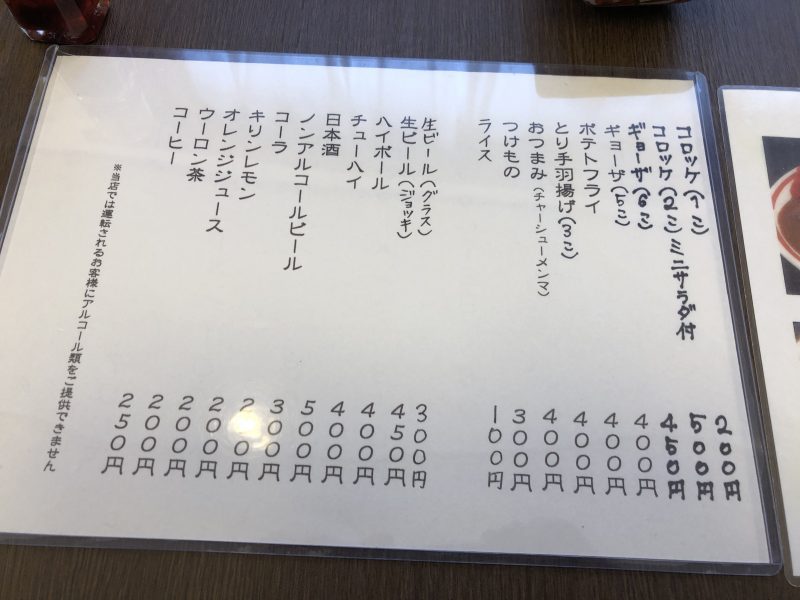 コロッケ(1コ) 200円
コロッケ(2コ)ミニサラダ付 500円
ギョーザ(6コ) 450円
ギョーザ(5コ) 400円
ポテトフライ 400円
とり手羽揚げ(3コ) 400円
おつまみ(チャーシューメンマ) 400円
つけもの 300円
ライス 100円
生ビール(グラス) 300円
生ビール(ジョッキ) 450円
ハイボール 400円
チューハイ 400円
日本酒 500円
ノンアルコールビール 300円
コーラ 200円
キリンレモン 200円
オレンジジュース 200円
ウーロン茶 200円
コーヒー 250円
※当店では運転されるお客様にアルコール類をご提供できません